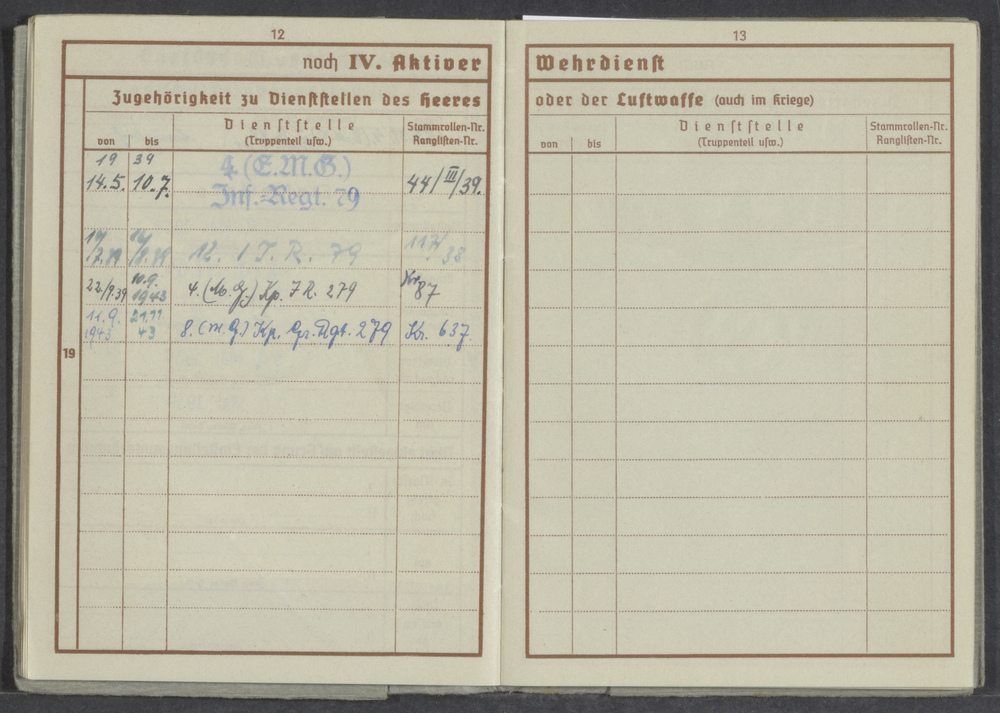 12
noch IV. Aktiver
Zugehörigkeit zu Dienststellen des Heeres
von bis
Dienststelle
(Truppenteil usw.)
Stammrollen-Nr.
Ranglisten-Nr.
19 39
14.5. 10.7. 4. (E.M.G.) 44/III/39.
Inf.=Regt. 79
12. I.R. 79
22./9.39 10.9.1943 4. (M.G.) Kp. I.R. 279 87
11.9.1943 21.11.43 8. (M.G.) Kp. Gr. Rgt. 279 Kr. 637
19
13
Wehrdienst
oder der Luftwaffe (auch im Kriege)
von bis
Dienststelle
(Truppenteil usw.)
Stammrollen-Nr.
Ranglisten-Nr.